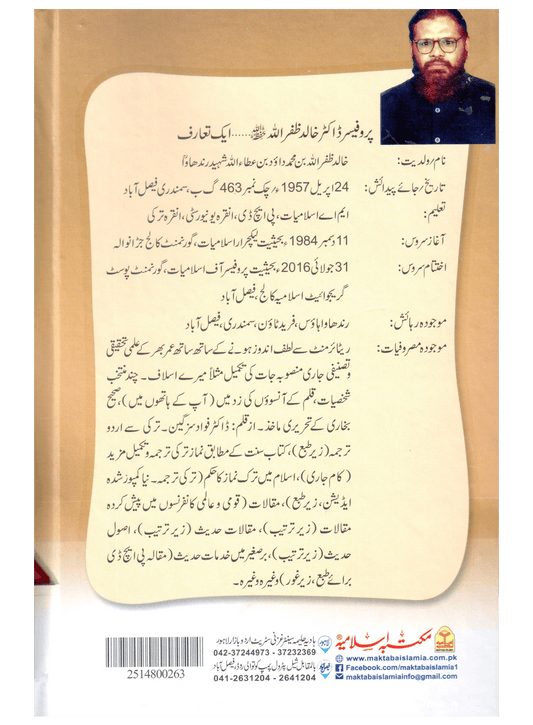 پروفیسر ڈاکٹر خالد ظفر اللہ ﷾......ایک تعارف
نام رولدیت: خالد ظفر اللہ بن محمد داؤد بن عطاء اللہ شہید رندھاوا
تاریخ رجائے پیدائش: 24 اپریل 1957ء رچک نمبر 463 گ ب، سمندری فیصل آباد
تعلیم: ایم اے اسلامیات، پی ایچ ڈی، انقرہ یونیورسٹی، انقرہ ترکی
آغاز سروس: 11 دسمبر 1984ء بحیثیت لیکچرار اسلامیات، گورنمنٹ کالج جڑانوالہ
اختتام سروس: 31 جولائی 2016ء بحیثیت پروفیسر آف اسلامیات، گورنمنٹ پوسٹ
گریجوایٹ اسلامیہ کالج، فیصل آباد
موجودہ رہائش: رندھاوا ہاؤس، فرید ٹاؤن، سمندری، فیصل آباد
موجودہ مصروفیات: ریٹائرمنٹ سے لطف اندوز ہونے کے ساتھ ساتھ عمر بھر کے علمی تحقیقی
وتصنیفی جاری منصوبہ جات کی تکمیل مثلاً میرے اسلاف۔ چند منتخب
شخصیات، قلم کے آنسوؤں کی زد میں (آپ کے ہاتھوں میں)، صحیح
بخاری کے تحریری ماخذ۔ از قلم: ڈاکٹر فواد سزگین۔ ترکی سے اردو
ترجمہ (زیر طبع)، کتاب سنت کے مطابق نماز ترکی ترجمہ وتکمیل مزید
(کام جاری)، اسلام میں ترک نماز کا حکم (ترکی ترجمہ۔ نیا کمپوز شدہ
ایڈیشن، زیر طبع)، مقالات (قومی و عالمی کانفرنسوں میں پیش کردہ
مقالات (زیر ترتیب)، مقالات حدیث (زیر ترتیب)، اصول
حدیث (زیر ترتیب)، برصغیر میں خدمات حدیث (مقالہ پی ایچ ڈی
برائے طبع، زیر غور) وغیرہ وغیرہ۔
مکتبہ اسلامیہ
لاہور ہادیہ حلیمہ سینٹر غزنی سٹریٹ اردو بازار لاہور
042-37244973 - 37232369
فیصل آباد بالمقابل شیل پٹرول پمپ کوتوالی روڈ، فیصل آباد
041-2631204 - 2641204
www.maktabaislamia.com.pk
Facebook.com/maktabaislamia1
maktabaislamiainfo@gmail.com
2514800263